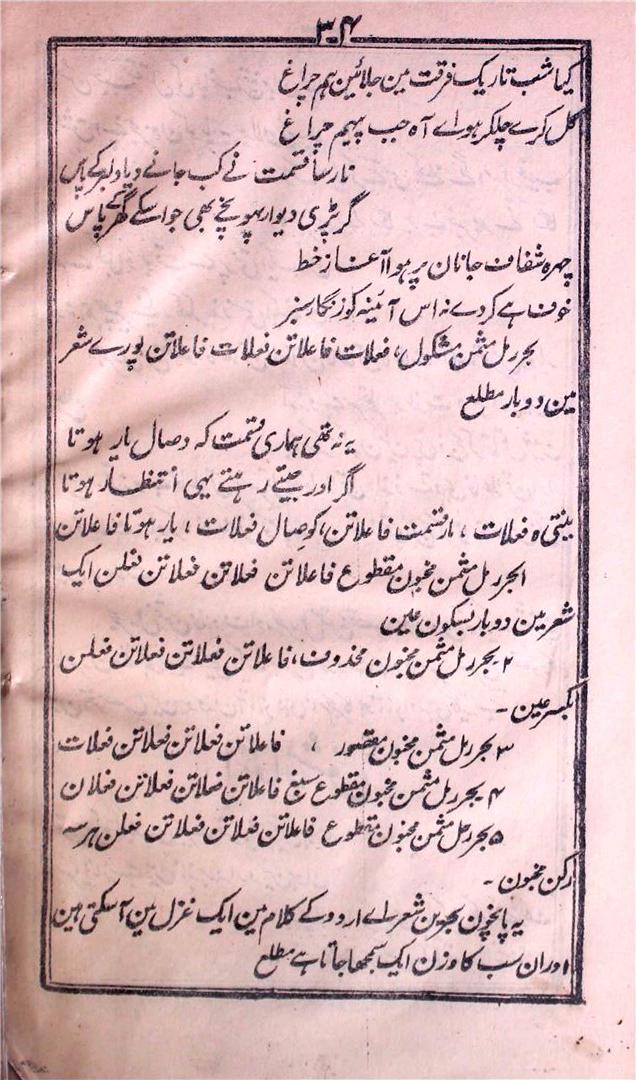 ۳۰۴
کیا شب تاریک فرقت مین جلائین ہم چراغ
گل کرے چلکر ہواے آہ جب پیہم چراغ
نارسا قسمت نے کب جانے دیا دلبر کے پاس
گر پڑی دیوار پہونچے بھی جو اسکے گھر کے پاس
چہرہ شفاف جانان پر ہوا آغاز خط
خوف ہے کردے نہ اس آئینہ کو زنگار سبز
بحر رمل مثمن مشکول، فعلات فاعلاتن فعلات فاعلاتن پورے شعر
مین دو بار مطلع
یہ نہ تھی ہماری قسمت کہ وصال یار ہوتا
اگر اور جیتے رہتے یہی انتظار ہوتا
فعلات ، رقسمت فاعلاتن، کوصال فعلات ، یار ہوتا فاعلاتن
ا بحر رمل مثمن مخبون مقطوع فاعلاتن فعلاتن فعلاتن فعلن ایک
شعر مین دو بار بسکون عین
۲ بحر رمل مثمن مخبون محذوف، فاعلاتن فعلاتن فعلاتن فعلن
بکسر عین ۔
۳ بحر رمل مثمن مخبون مقصور ، فاعلاتن فعلاتن فعلاتن فعلات
۴ بحر رمل مثمن مخبون مقطوع مسبغ فاعلاتن فعلاتن فعلاتن فعلان
۵ بحر رمل مثمن مخبون مقطوع فاعلاتن فعلاتن فعلاتن فعلن ہر سہ
رکن مخبون ۔
یہ پانچون بحرین شعراے اردو کے کلام مین ایک غزل مین آسکتی ہین
اور ان سب کا وزن ایک سمجھا جاتا ہے مطلع